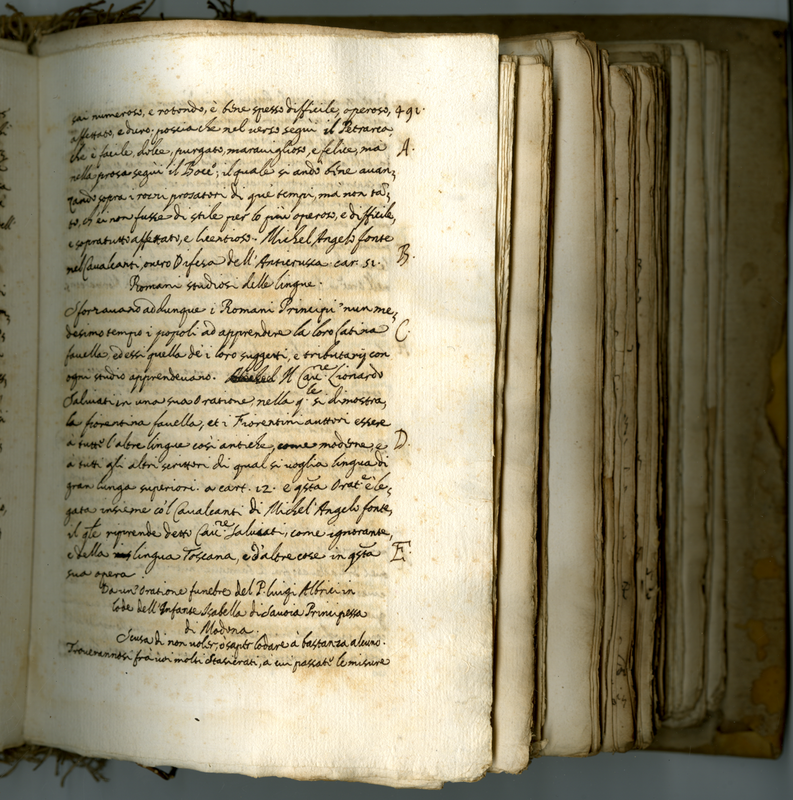 sai numeroso, e rotondo, è bene spesso difficile, operoso, 491.
affettato, e duro. poscia che nel verso seguì il Petrarca,
che è facile, dolce, purgato, maraviglioso, e felice, ma A.
nella prosa seguì il Bocc.°; il quale si andò bene auan,
zando sopra i rozzi prosatori di que' tempi, mà non tā,
to, ch'ei non fusse di stile per lo più operoso, e difficile,
e sopratutto affettato, e licentioso. Michel Angelo fonte
nel Caualcanti, ouero Difesa dell'Anticrusca car. 51. B.
Romani studiosi delle lingue.
Sforzauano adunque i Romani Principi nun me,
desimo tempo i popoli ad apprendere la loro latina
fauella, ed essi quella de i loro suggetti, e tributarij con C.
ogni studio apprendeuano. Il Cau.re Lionardo
Saluiati in una sua Oratione, nella q.le si dimostra,
la fiorentina fauella, et i Fiorentini auttori essere
à tutte l'altre lingue così antiche, come moderne, e D.
à tuti gli altri scrittori di qual si voglia lingua di
gran lunga superiori. a cart. 12. e q̄sta Orat.e è le,
gata insieme co'l Caualcanti di Michel'Angelo fonte,
il q̄le riprende detto Cau.re Saluiati, come ignorante,
e della lingua Toscana, e d'altre cose in q̄sta E.
sua opera.
Da un'Oratione funebre del P. luigi Albrici in
lode dell'Infante Isabella di Sauoia Principessa
di Modena.
Scusa di non voler, o saper lodare à bastanza alcuno.
Trouerannosi frà voi molti Stasicrati, a cui passate le misure